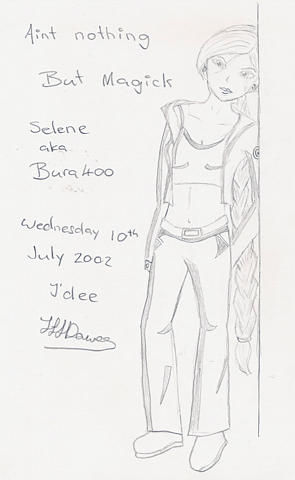 Aint nothing
But Magick
Selene
aka
Bura400
Wednesday 10th
July 2002
J'dee